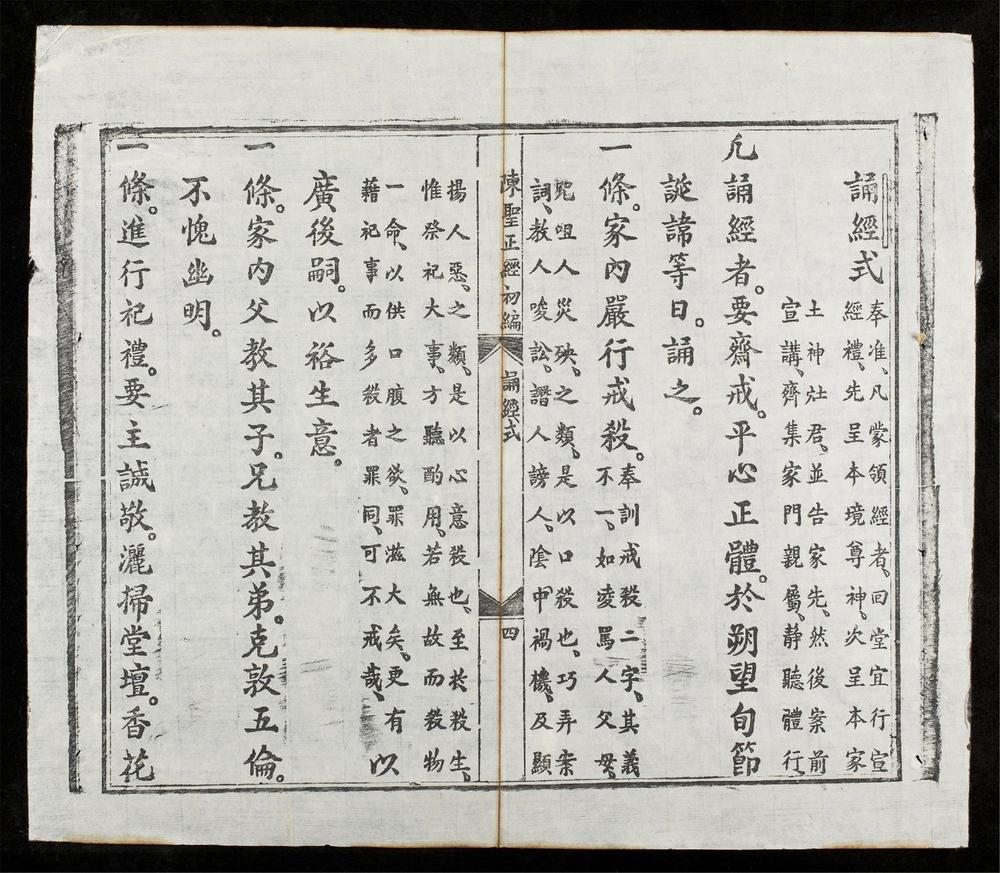 誦經式奉准、凡蒙領經者、回堂宜行宣
經禮、先呈本境尊神、次呈本家
土神灶君、並告家先、然後案前
宣講、齊集家門親屬、静聽體行、
凡誦經者。要齋戒。平心正體。於朔望旬節
誕諱等日。誦之。
一條。家內嚴行戒殺。奉訓戒殺二字、其義
不一、如凌罵人父母、
咒咀人災殃、之類、是以口殺也、巧弄案
詞、教人唆訟、譖人謗人、陰甲禍機、及顯
陳聖正經初編 誦經式 四
揚人惡、之類、是以心意殺也、至於殺生、
惟祭祀大事、方聽酌用、若無故而殺物
一命、以供口腹之欲、罪滋大矣、更有
藉祀事而多殺者罪同、可不戒哉、以
廣後嗣。以裕生意。
一條。家內父教其子。兄教其弟。克敦五倫。
不愧幽明。
一條。進行祀禮。要主誠敬。灑掃堂壇。香花